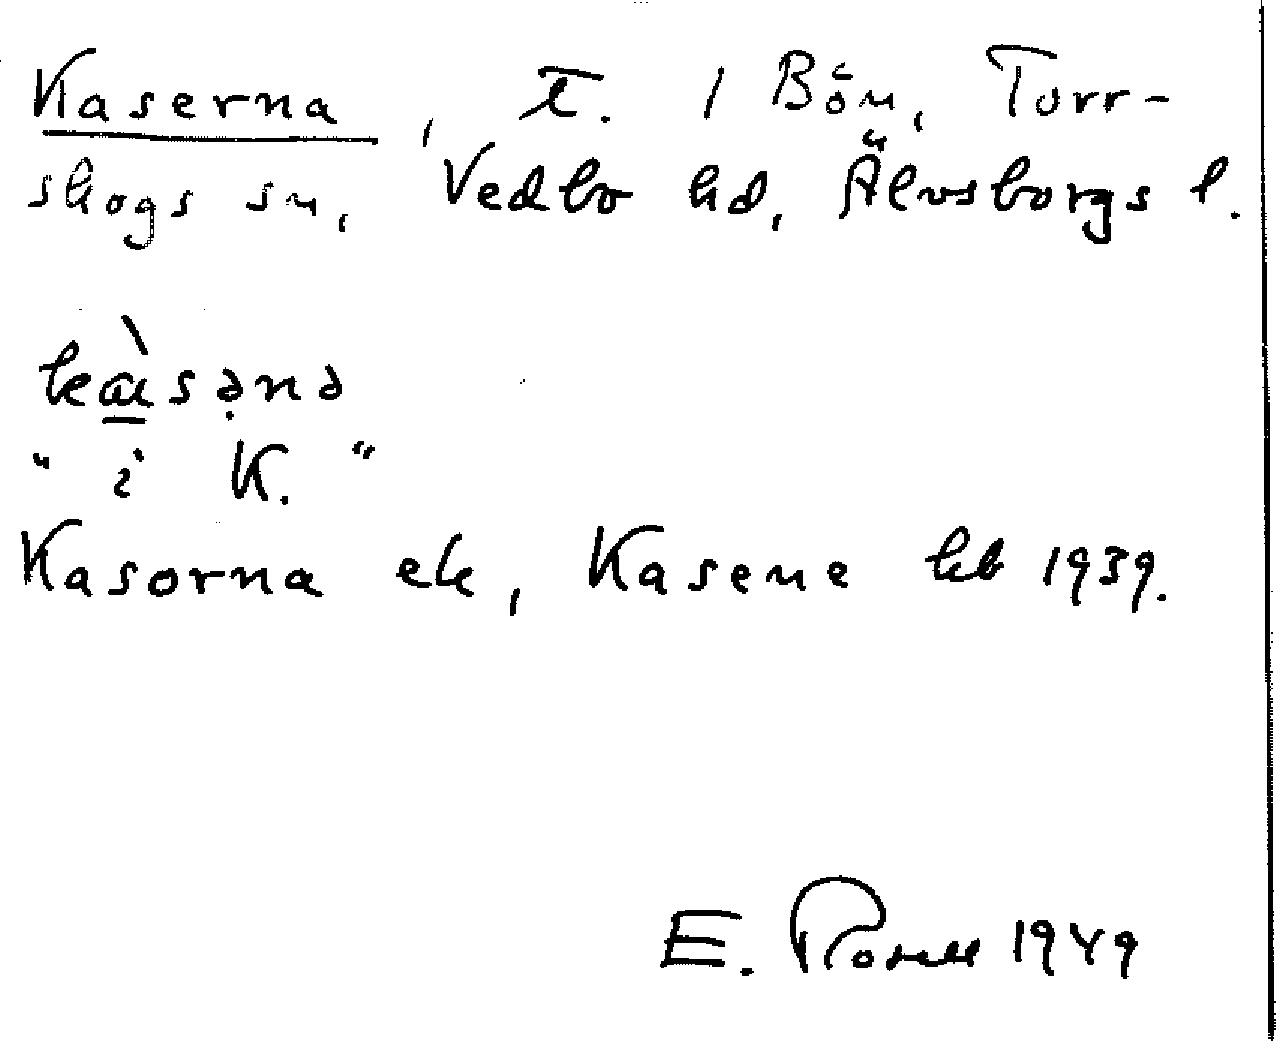 Kaserna, t. 1 Bön, Torr-
skogs sn, Vedbo hd, Älvsborgs l.
kàsəṇə
" i K. "
Kasorna ek, Kasene kb 1939.
E. 1949